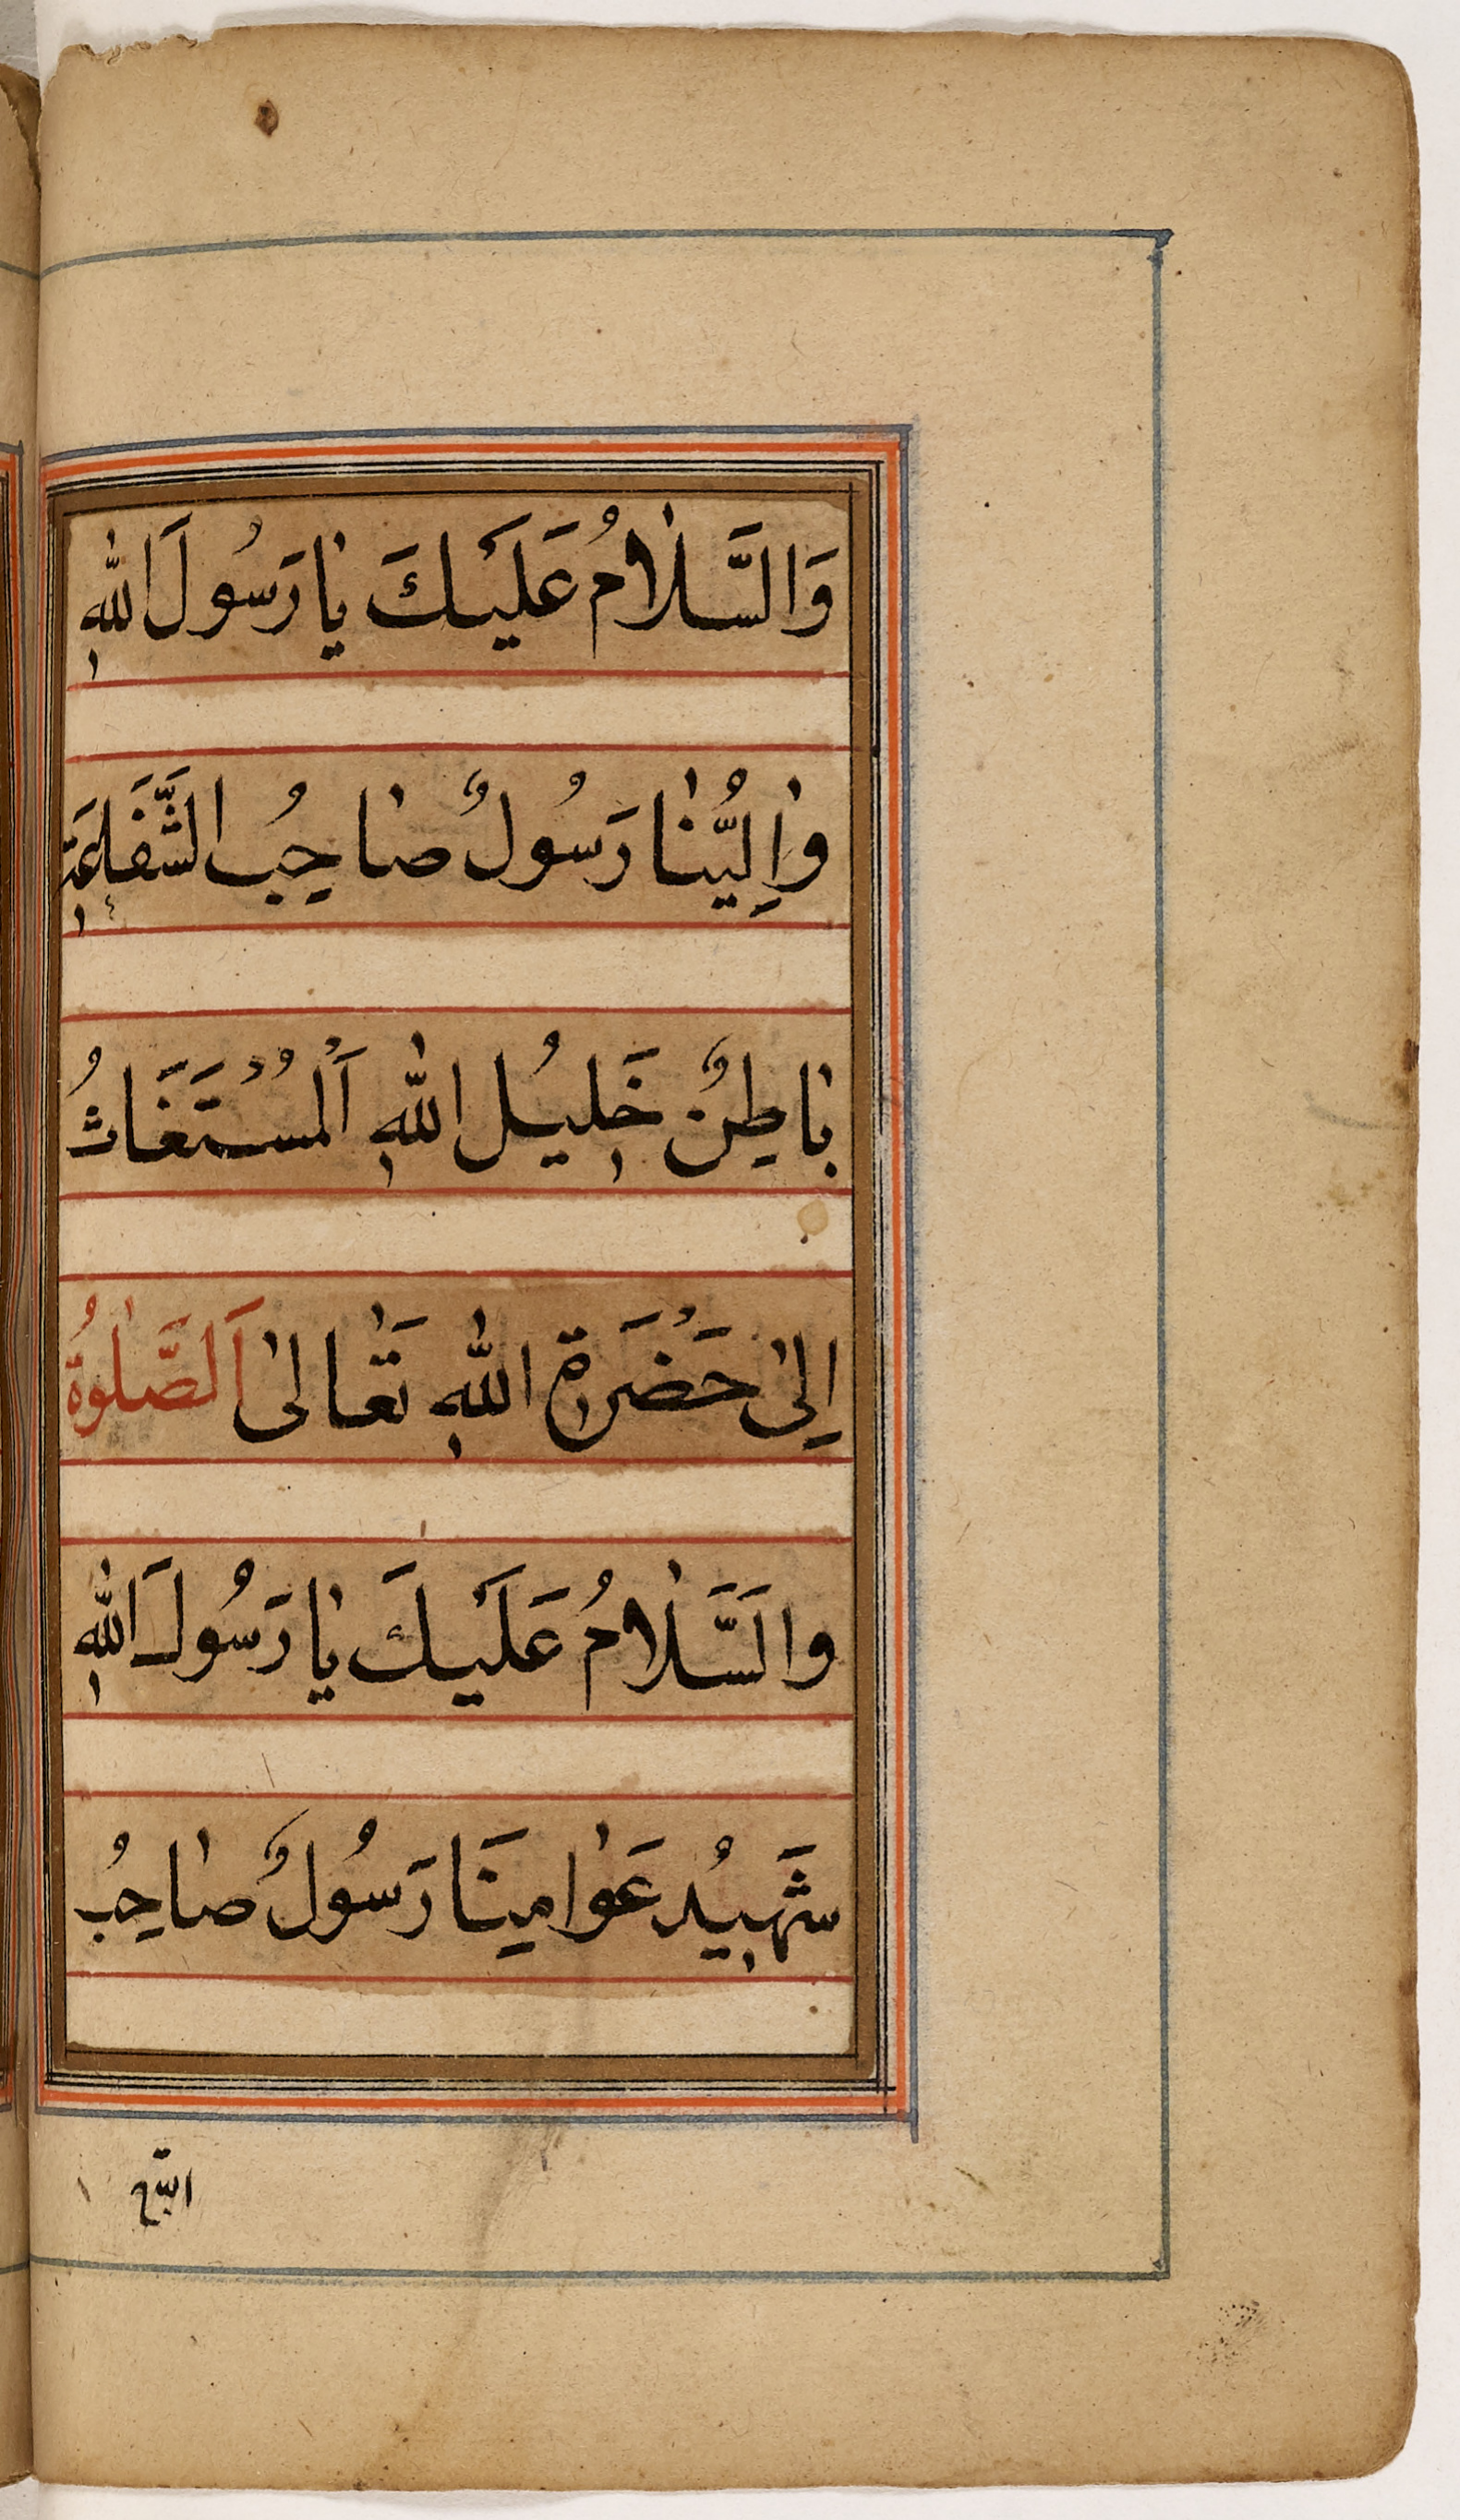 وَالسَّلٰامُ عَلَيْكَ يٰا رَسُولَ اللّٰهِ
وٰاِلِيُّنٰا رَسُولٌ صٰاحِبُ الشَّفَاعَةِ
بٰاطِنٌ خَلِيلُ اللّٰهِ اَلْمُسْتَغَاثُ
اِلىٰ حَضْرَةِ اللّٰهِ تَعٰالىٰ اَلصَّلٰوةُ
والَسَّلٰامُ عَلَيْكَ يٰا رَسُولَ اللّٰهِ
شَهِيْدُ عَوٰامِينَا رَسُولٌ صٰاحِبُ